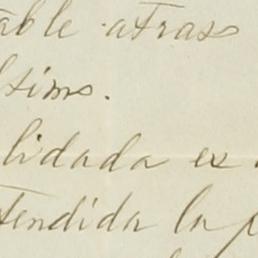 able atraso
lsimo.
lidada es
tendida la p